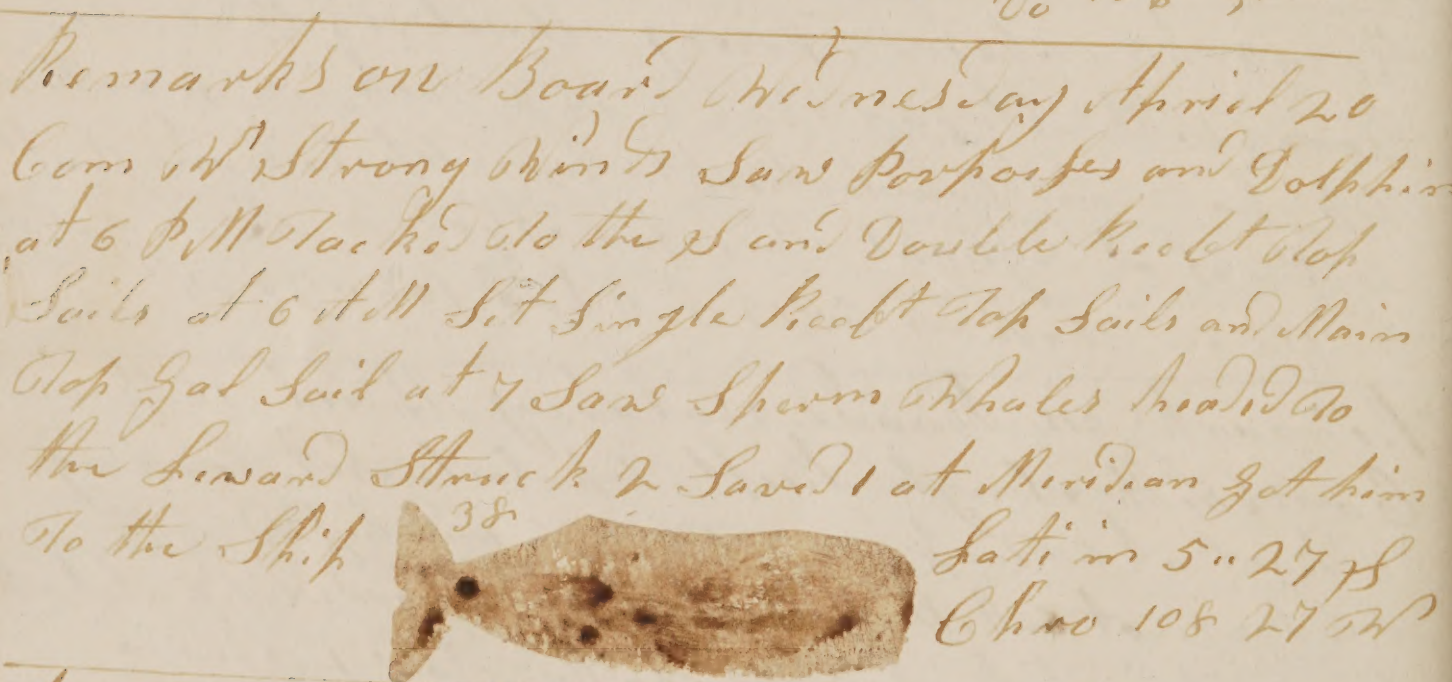 Remarks on Board Wednesday April 20
Com Wh Strong Winds Saw Porposses and Dolphin
at 6 PM Tacked To the S and Double Reeft Top
Sails at 6 AM Set Single Reeft Top Sails and Main
Top Gal Sail at 7 Saw Sperm Whales headed To
the Leward Struck 2 Saved 1 at Meridian Got him
To the Ship
38
Lati in 5" 27 S
Chro 108 27 W